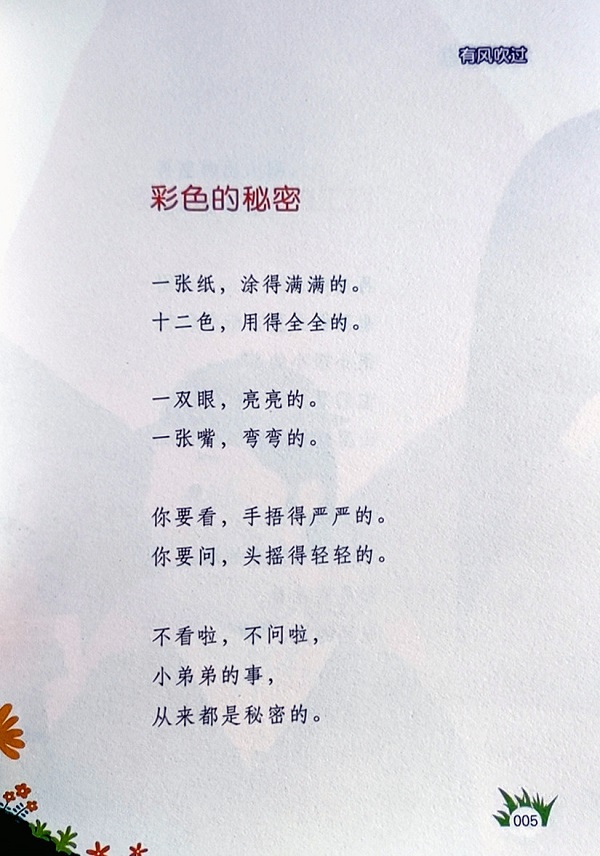 有风吹过
彩色的秘密
一张纸，涂得满满的。
十二色，用得全全的。
一双眼，亮亮的。
一张嘴，弯弯的。
你要看，手捂得严严的。
你要问，头摇得轻轻的。
不看啦，不问啦，
小弟弟的事，
从来都是秘密的。
005